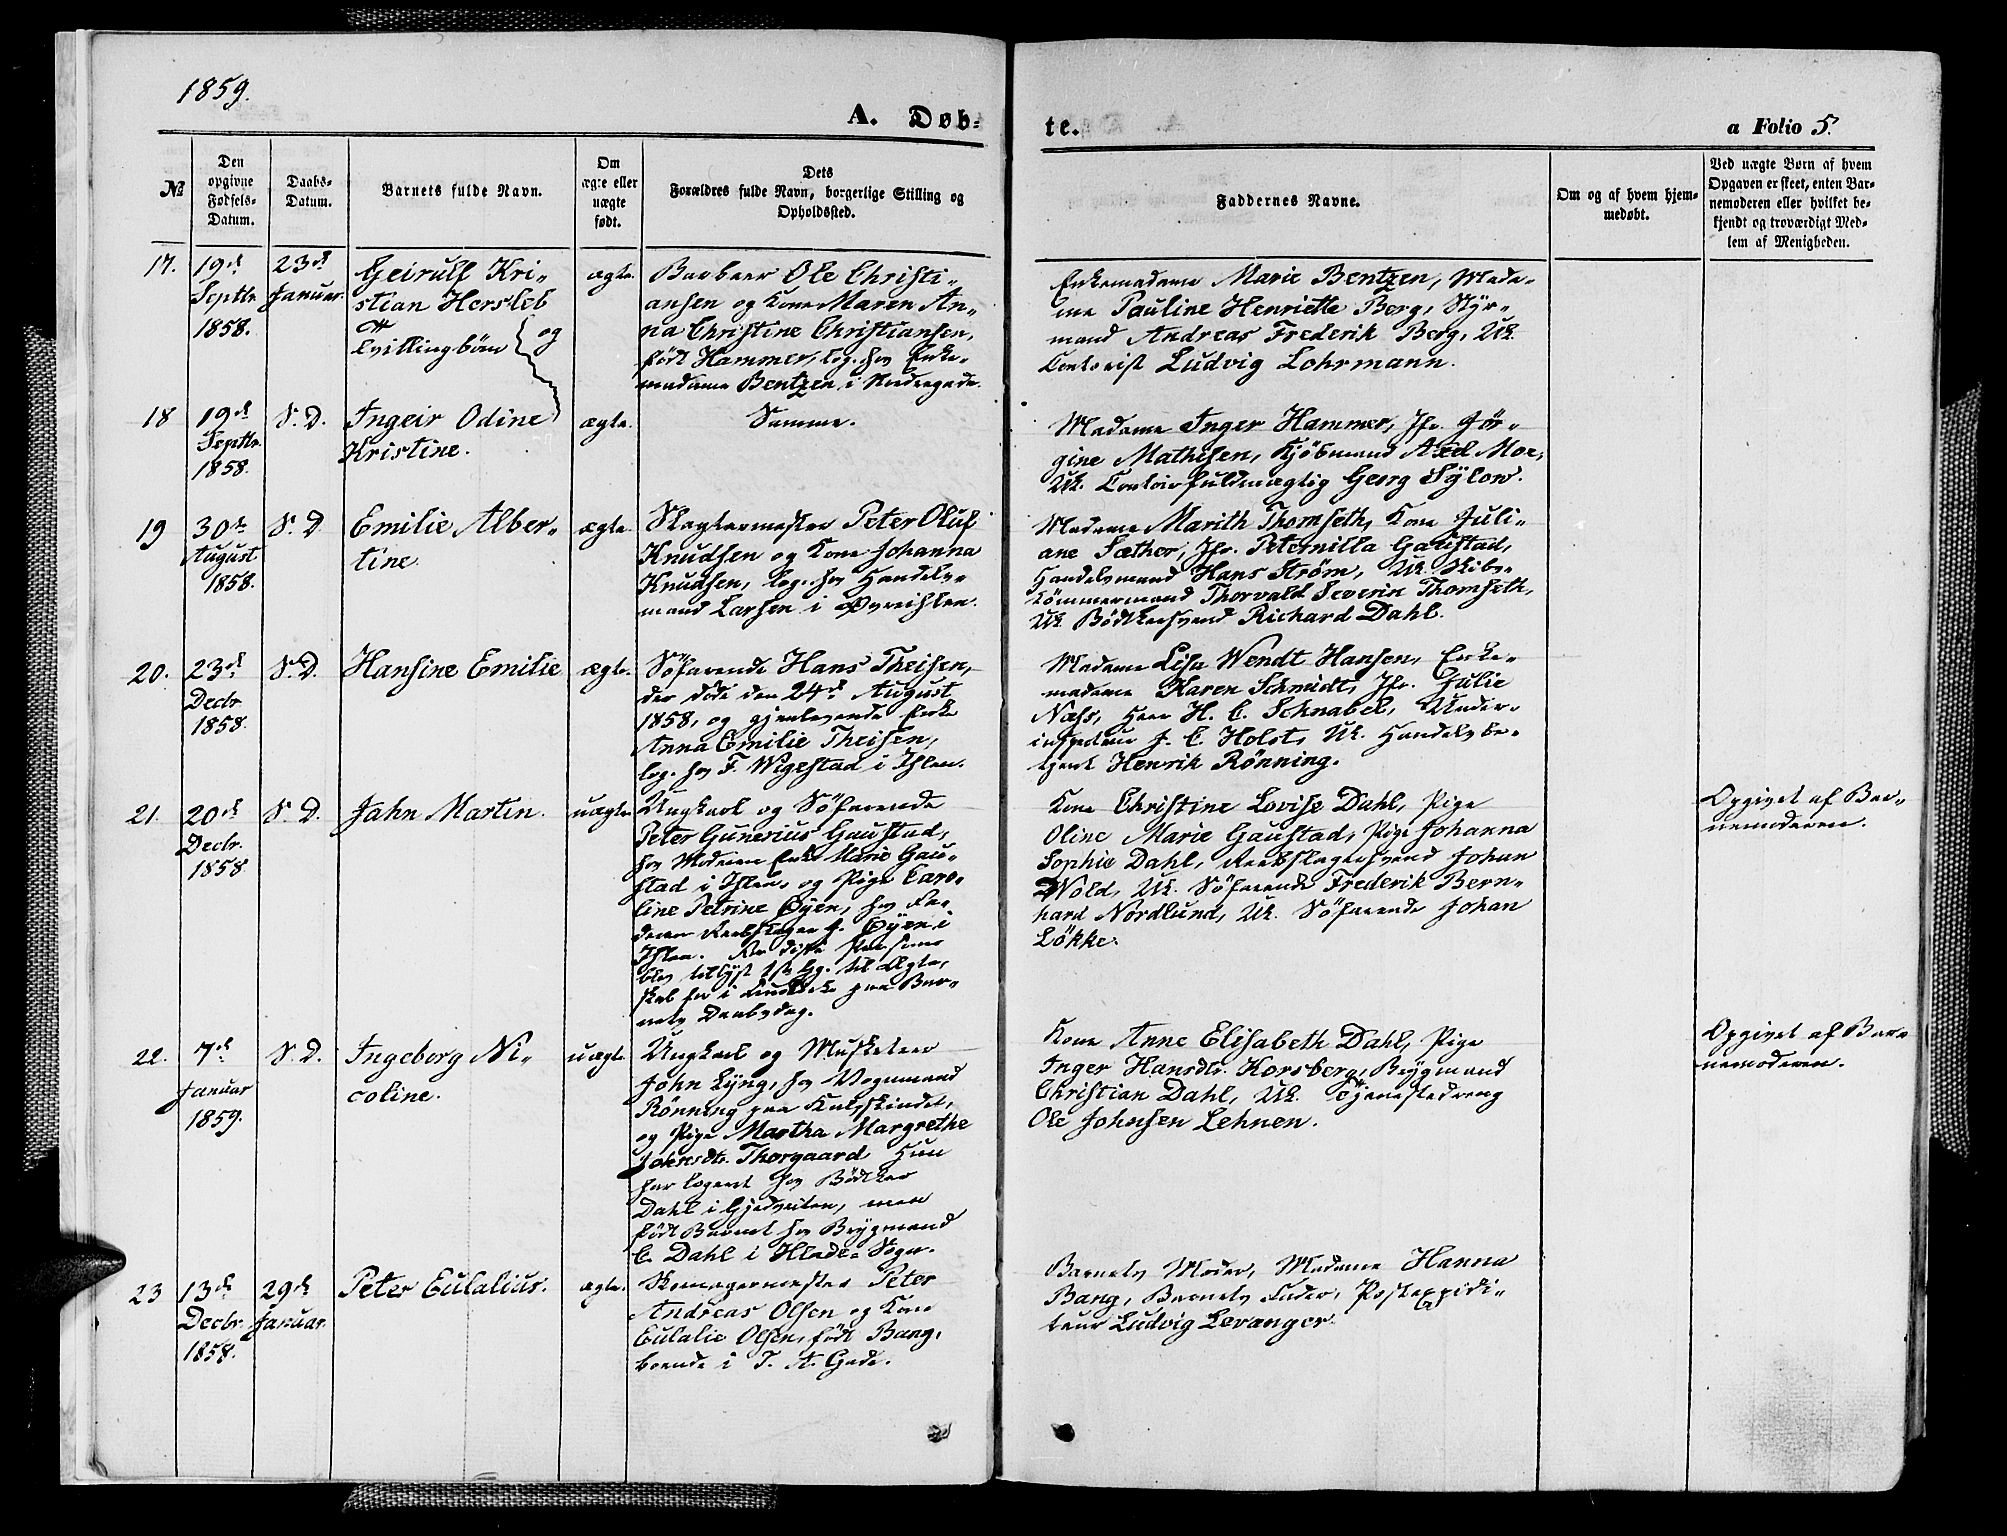 1859.
A. Døb-
te.
a Folio 5.
№
Den
opgivne
Fødsels-
Datum.
Daabs-
Datum.
Barnets fulde Navn.
Om
ægte eller
uægte
født.
Dets
Forældres fulde Navn, borgerlige Stilling og
Opholdssted.
Faddernes Navne.
Om og af hvem hjem-
medøbt.
Ved uægte Børn af hvem
Opgaven er skeet, enten Bar-
nemoderen eller hvilket be-
kjendt og troværdigt Med-
lem af Menigheden.
17.
19de
Septbr
1858.
23de
Januar.
Geirulf Kri-
stian Hersleb
Tvillingbørn og
ægte
Barbeer Ole Christi-
ansen og Kone Maren An-
na Christine Christiansen,
født Hammer, log. hos Enke-
madame Bentzen i Nordregade.
Enkemadame Marie Bentzen, Mada-
me Pauline Henriette Berg, Styr-
mand Andreas Frederik Berg, Uk.
Contorist Ludvig Lohrmann.
18
19de
Septbr
1858.
S. D.
Ingeir Odine
Kristine.
ægte.
Samme.
Madame Inger Hammer, Jfr. Jør-
gine Mathisen, Kjöbmand Axel Moe,
Uk. Contoirfuldmægtig Georg Sylow.
19
30te
August
1858.
S. D.
Emilie Alber-
tine.
ægte.
Slagtermester Peter Oluf
Knudsen og Kone Johanna
Knudsen, log. hos Handels-
mand Larsen i Øvreihlen.
Madame Marith Thomseth, Kone Juli-
ane Sæther, Jfr. Peternilla Gaustad,
Handelsmand Hans Strøm, Uk. Skibs-
tömmermand Thorvald Severin Thomseth,
Uk. Bödkersvend Richard Dahl.
20.
23de
Decbr
1858.
S. D.
Hansine Emilie
ægte.
Söfarende Hans Theisen,
der döde den 24de August
1858, og gjenlevende Enke
Anna Emilie Theisen,
log. hos F. Wigestad i Ihlen.
Madame Lisa Wendt Hansen, Enke-
madame Karen Schmidt, Jfr. Julie
Næss, Herr H. C. Schnabel, Under-
inspecteur J. C. Holst, Uk. Handelsbe-
tjent Henrik Rönning.
21.
20de
Decbr.
1858
S. D.
Jahn Martin.
uægte.
Ungkarl og Söfarende
Peter Gunerius Gaustad,
hos Moderen Enke Marie Gau-
stad i Ihlen, og Pige Caro-
line Petrine Öyen, hos Fa-
deren Reebslager J. Öyen i
Ihlen. Disse Personer
blev tillyst 1ste Gg. til Ægte-
skab her i Kirken paa Bar-
nets Daabsdag.
Kone Christine Lovise Dahl, Pige
Oline Marie Gaustad, Pige Johanna
Sophie Dahl, Reebslagersvend Johan
Wold, Uk. Söfarende Frederik Bern-
hard Nordlund, Uk. Söfarende Johan
Løkke.
Opgivet af Bar-
nemoderen.
22.
7de
Januar
1859.
S. D.
Ingeborg Ni-
coline.
uægte
Ungkarl og Musketeer
John Lyng, hos Vognmand
Rönning paa Kalvskindet,
og Pige Martha Margrethe
Johnsdtr. Thorgaard. Hun
har logeret hos Bödker
Dahl i Gjedveiten, men
födt Barnet hos Brygmand
C. Dahl i Hlade Sogn.
Kone Anne Elisabeth Dahl, Pige
Inger Hansdtr. Korsberg, Brygmand
Christian Dahl, Uk. Tjenestedreng
Ole Johnsen Lehnen.
Opgivet af Bar-
nemoderen.
23
13de
Decbr
1858.
29de
Januar.
Peter Eulalius.
ægte.
Skomagermester Peter
Andreas Olsen og Kone
Eulalie Olsen, født Bang,
boende i T. A. Gade.
Barnets Moder, Madame Hanna
Bang, Barnets Fader, Postexpedi-
teur Ludvig Levanger.